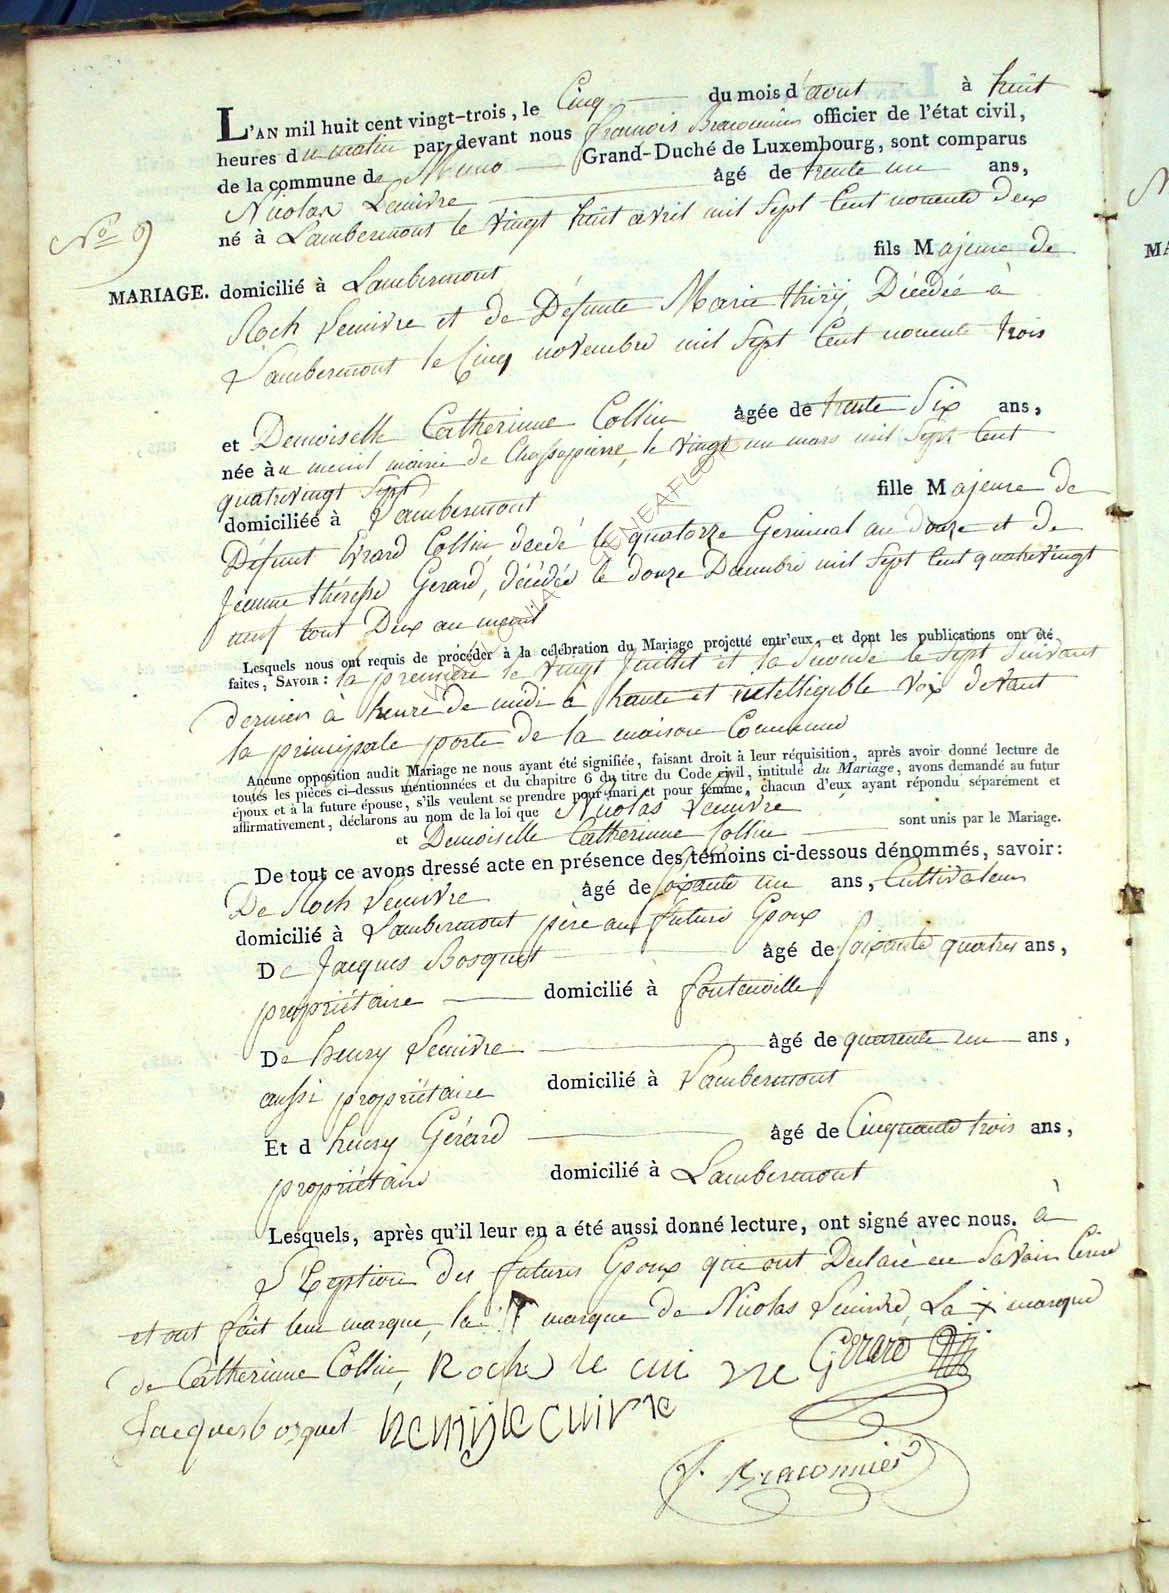 L'AN mil huit cent vingt-trois, le Cinq du mois d'aout à huit
heures du matin par devant nous francois Braconnier officier de l'état civil,
de la commune de Muno Grand-Duché de Luxembourg, sont comparus
Nicolas Lecuivre âgé de trente un ans,
né à Lambermont le vingt huit avril mil Sept Cent nonente deux
No 9
MARIAGE. domicilié à Lambermont fils Majeure de
Roch Lecuivre et de Défunte Marie thiry, Décédée à
Lambermont le Cinq novembre mil Sept Cent nonente trois
et Demoiselle Catherinne Collin âgée de trente Six ans,
née au menil mairie de Chassepierre, le vingt un mars mil Sept Cent
quatrevingt Sept fille Majeure de
domiciliée à Lambermont
Defunt Evrard Collin, décdé le quatorze Germinal an douze et de
Jeanne thérésse Gerard, décédée le douze Decembre mil Sept Cent quatrevingt
neuf tout Deux au menil
Lesquels nous ont requis de procéder à la célébration du Mariage projetté entr'eux, et dont les publications ont été
faites, SAVOIR : la premiere le vingt Juillet et la Seconde le Sept Suivant
dernier à heure de midi à haute et intelligible voix devant
la principale porte de la maison Commune
Aucune opposition audit Mariage ne nous ayant été signifiée, faisant droit à leur réquisition, après avoir donné lecture de
toutes les pièces ci-dessus mentionnées et du chapitre 6 du titre du Code civil, intitulé du Mariage, avons demandé au futur
époux et à la future épouse, s'ils veulent se prendre pour mari et pour femme, chacun d'eux ayant répondu séparément et
affirmativement, déclarons au nom de la loi que Nicolas Lecuivre
et Demoiselle Catherinne Collin sont unis par le Mariage.
De tout ce avons dressé acte en présence des témoins ci-dessous dénommés, savoir:
De Roch Lecuivre âgé de Soixante un ans, Cultivateur
domicilié à Lambermont père au futur Epoux
De Jacques Bosquet âgé de Soixante quatres ans,
propriétaire domicilié à fontenoille
De henry Lecuivre âgé de quarente un ans,
aussi propriétaire domicilié à Lambermont
Et d henry Gérard âgé de Cinquante trois ans,
propriétaire domicilié à Lambermont
Lesquels, après qu'il leur en a été aussi donné lecture, ont signé avec nous. à
L'Exeption des futures Epoux qui ont Declaré ne Savoir Ecrire
et ont fait leur marque, la marque de Nicolas Lecuivre, La x marque
de Catherinne Collin, Roche le cui vre Gerard
Jacques bosquet henrij le cuivre
F. Braconnier